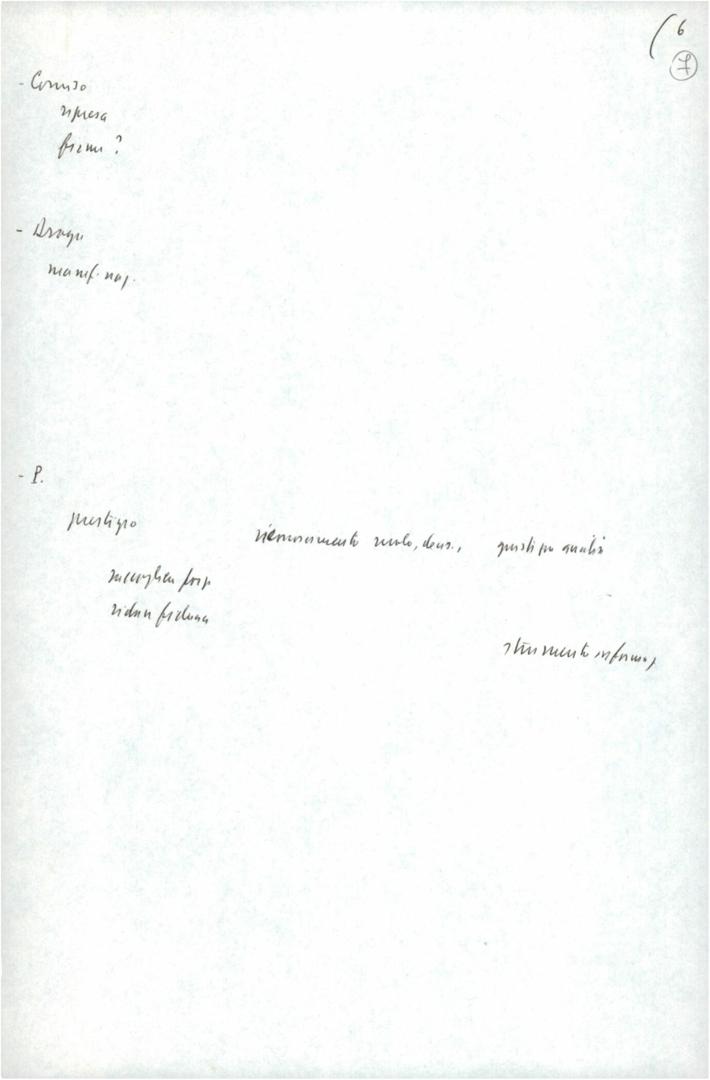 6
7
- Comiso
ripresa
firme ?
- Droga
manif. naz.
- P.
prestigio
riconoscimento ruolo, democ., giusti po analisi
raccogliere forze
ridare fiducia
strumento informaz.